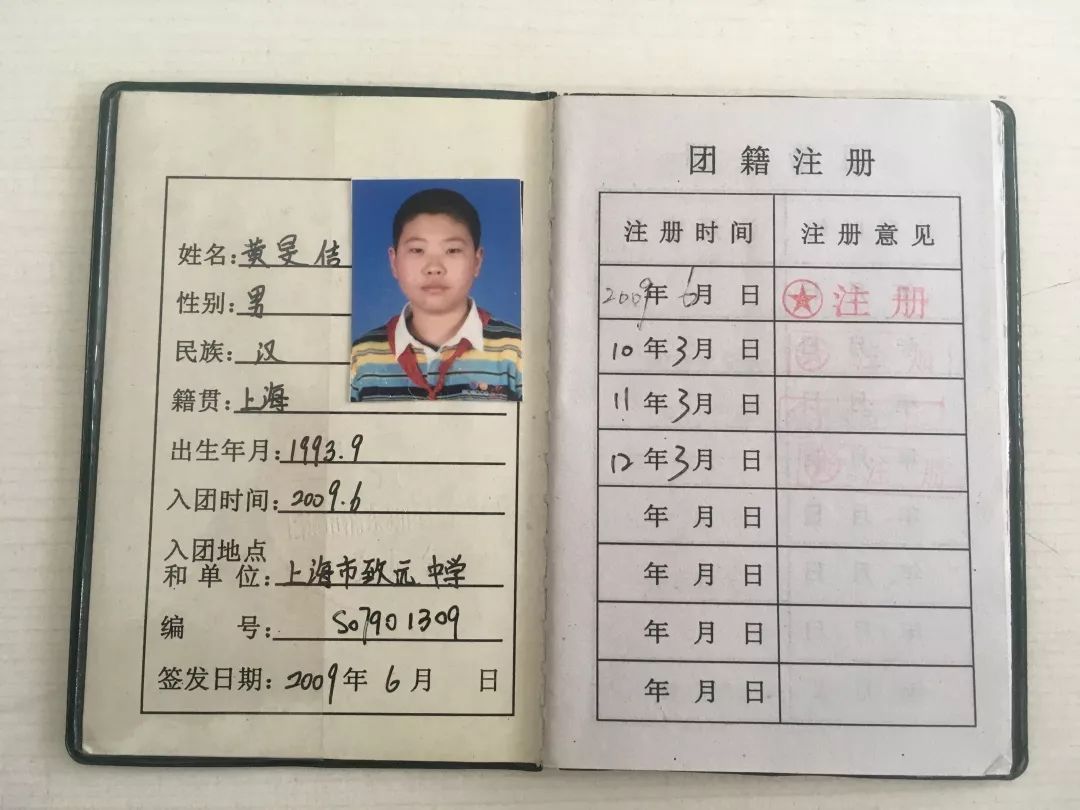 姓名:黄旻佶
性别:男
民族:汉
籍贯:上海
出生年月:1993.9
入团时间:2009.6
入团地点
和单位:上海市致远中学
编 号:S07901309
签发日期:2009年 6月 日
团籍注册
注册时间 注册意见
2009年 6月 日 注册
10年3月 日
11年3月 日
12年3月 日 注册
年 月 日
年 月 日
年 月 日
年 月 日